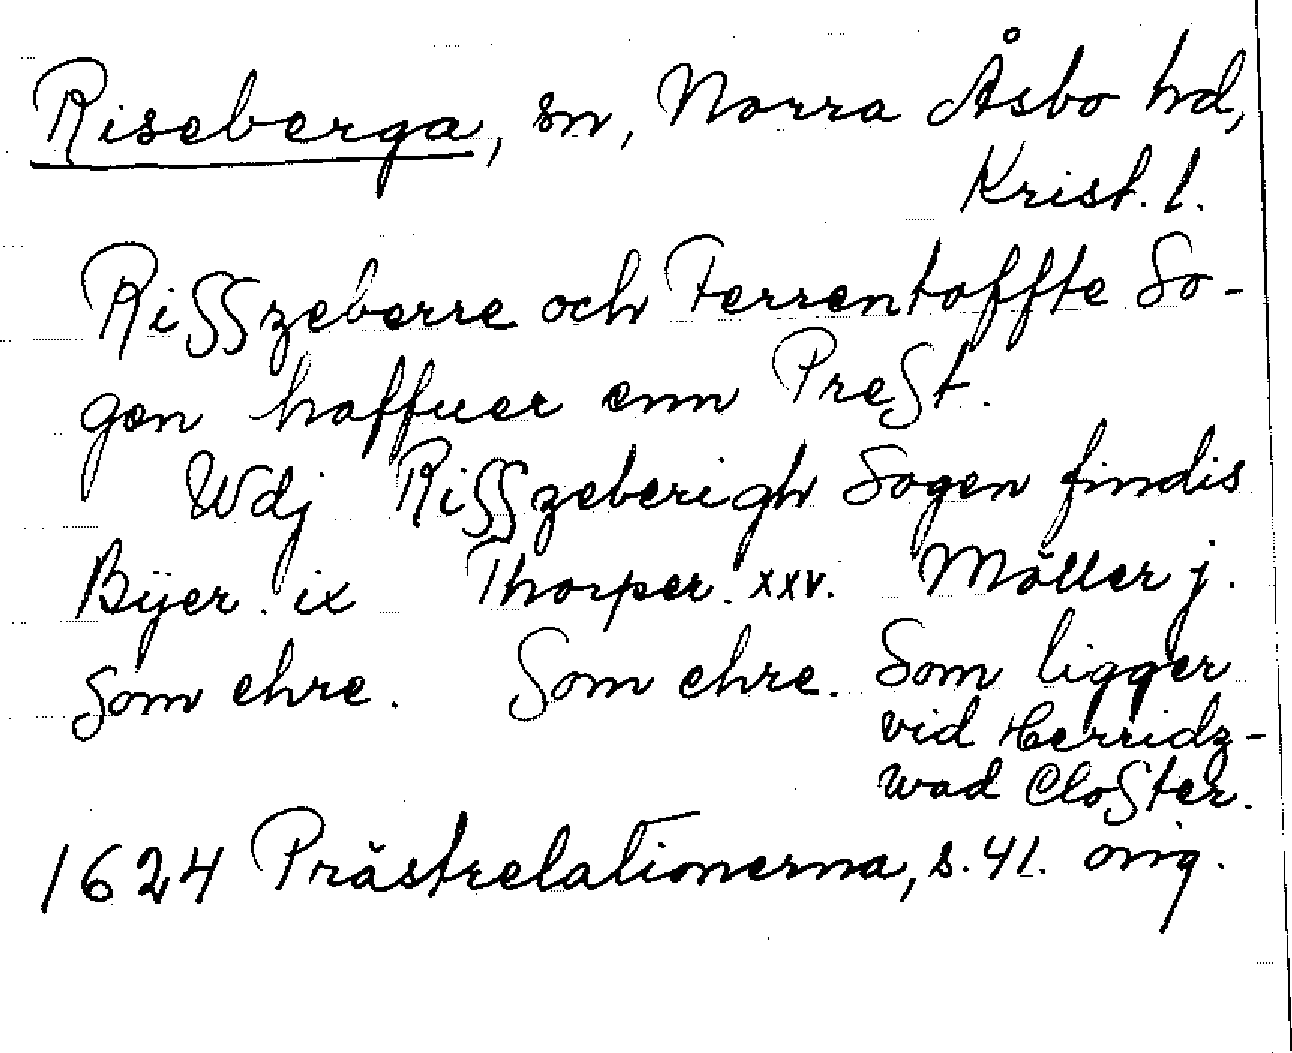 Riseberga, sn, Norra Åsbo hd,
Krist. l.
Riſſzeberre och Ferrentofftte So-
gen haffuer enn Preſt.
Wdj Riſſzeberigh Sogen findis
Bÿer. ix Thorper. xxv. Möller j.
ſom ehre. Som ehre. Som ligger
vid Herridz-
wad Cloſter.
1624 Prästrelationerna, s. 41. orig.